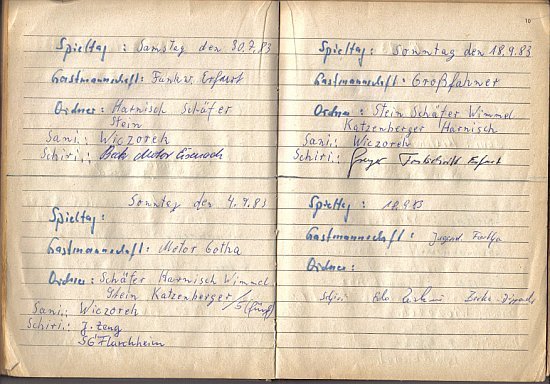 Spieltag: Samstag den 30.7.83
Gastmannschaft: Funkw. Erfurt
Ordner: Harnisch Schäfer
Stein
Sani.: Wiczoreh
Schiri.: Motor Eisenach
Sonntag den 4.9.83
Spieltag:
Gastmannschaft: Motor Gotha
Ordner: Schäfer Harnisch Wimmel
Stein Katzenberger
Sani.: Wiczoreh
Schiri.: J. Zeng
SG Flarchheim
10
Spieltag: Sonntag den 18.9.83
Gastmannschaft: Großfahner
Ordner: Stein Schäfer Wimmel
Katzenberger Harnisch
Sani.: Wiczoreh
Schiri: Fortschritt Erfurt
Spieltag: 18.9.83
Gastmannschaft: Jugend
Ordner:
Schiri